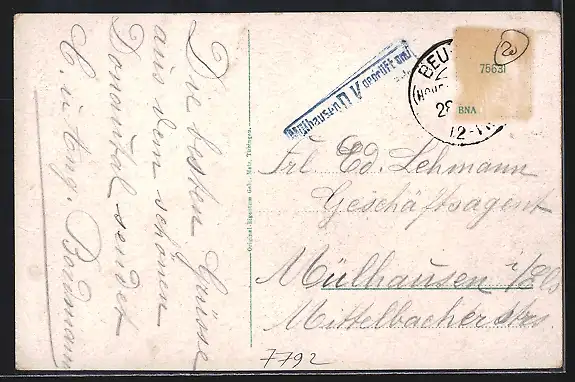 Die besten Grüsse
aus dem schönen
Donautal sendet
E. u. Aug. Bordmann
Original-Eigentum Gebr. Metz, Tübingen.
Mülhausen D V geprüft und
BEU
(Hohe
28
12-1
20
75631
BNA
Frl. Ed. Lehmann
Geschäftsagent
Mülhausen i/Els
Mittelbacherstrs
7792